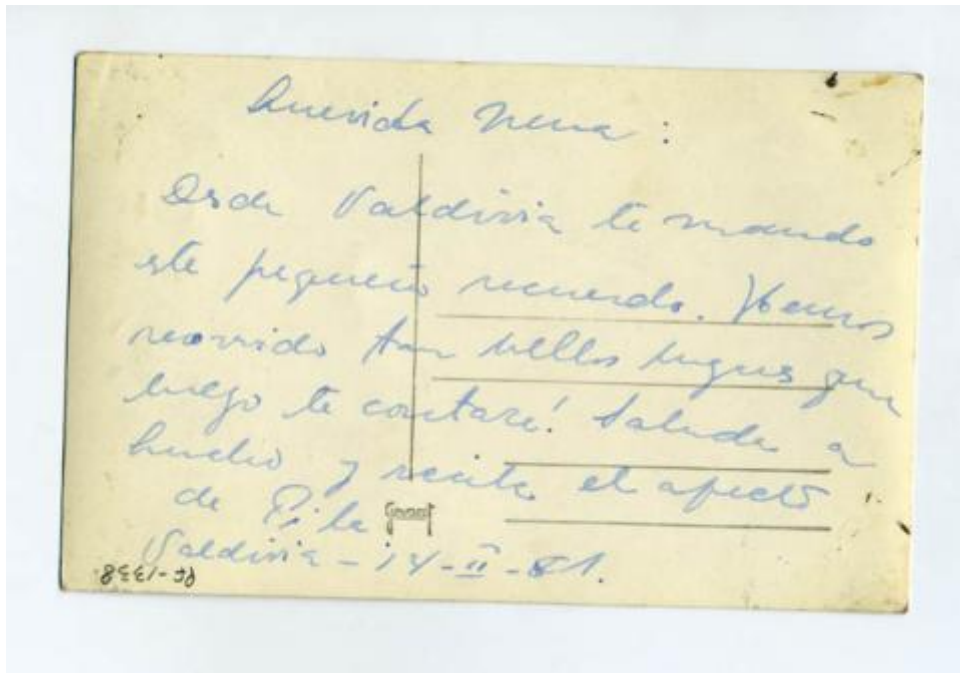 Querida Nena:
Desde Valdivia te mando
este pequeño recuerdo. Hemos
recorrido tan bellos lugares que
luego te contaré! Saluda a
Lucho y recibe el afecto
de
Valdivia - 14-II-81.
Pf-1338